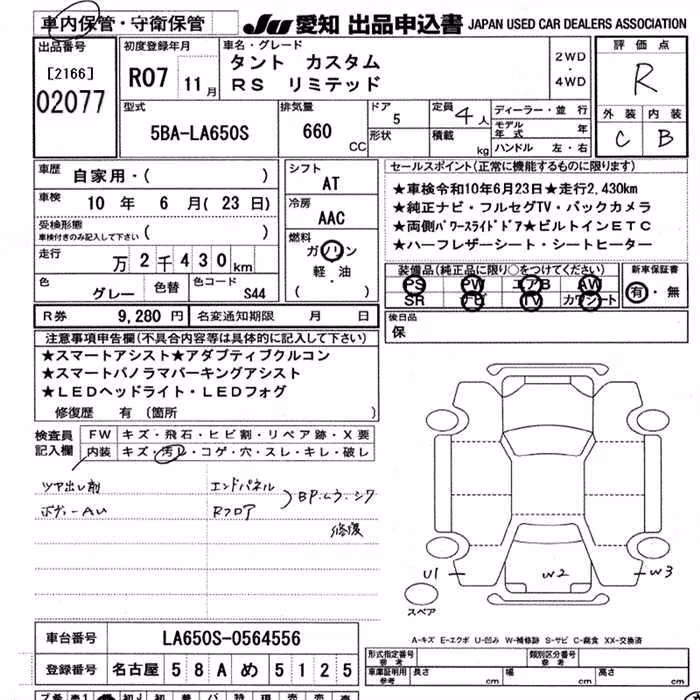 車内保管・守衛保管
JU 愛知 出品申込書 JAPAN USED CAR DEALERS ASSOCIATION
出品番号
[2166]
02077
初度登録年月
R07 11月
車名・グレード
タント カスタム
RS リミテッド
2WD
・
4WD
評価点
R
外装 内装
C B
型式
5BA-LA650S
排気量
660
CC
ドア
5
形状
定員
4人
積載
kg
ディーラー・並行
モデル年式 年
ハンドル 左・右
車歴
自家用・( )
車検
10 年 6 月(23 日)
受検形態
車検付きのみ記入して下さい ( )
走行
万 2 千 4 3 0 km
色
グレー
色替
色コード
S44
シフト
AT
冷房
AAC
燃料
ガソリン
軽・油
( )
セールスポイント(正常に機能するものに限ります)
★車検令和10年6月23日★走行2,430km
★純正ナビ・フルセグTV・バックカメラ
★両側パワースライドドア★ビルトインETC
★ハーフレザーシート・シートヒーター
装備品(純正品に限り○をつけてください)
PS PW エアB AW
SR ナビ TV カワシート
新車保証書
有・無
R券 9,280 円 名変通知期限 月 日
後日品
保
注意事項申告欄(不具合内容等は具体的に記入して下さい)
★スマートアシスト★アダプティブクルコン
★スマートパノラマパーキングアシスト
★LEDヘッドライト・LEDフォグ
修復歴 有 (箇所 )
検査員
記入欄
FW キズ・飛石・ヒビ割・リペア跡・X要
内装 キズ・汚レ・コゲ・穴・スレ・キレ・破レ
ツヤ出し剤
ボディーAU
エンドパネル
Rフロア
修復
U1 W2 W3
スペア
A-キズ E-エクボ U-凹み W-補修跡 S-サビ C-腐食 XX-交換済
車台番号 LA650S-0564556
登録番号 名古屋 5 8 A め 5 1 2 5
形式指定番号
参考
類別区分番号
参考
車庫証明用
参考
長さ cm 幅 cm 高さ cm